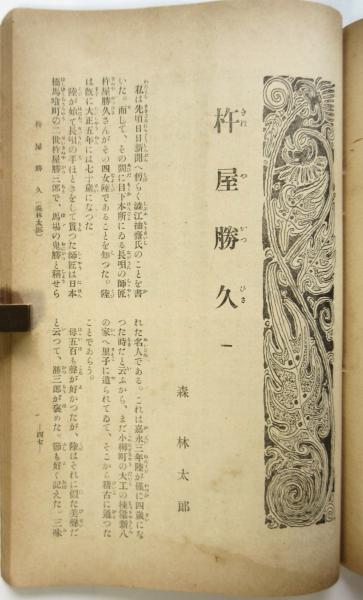 杵屋勝久 一
きねやかつひさ
森林太郎
私は先頃日日新聞へ暫らく澁江抽齋氏のことを書
いた。而して、その間に目下本所にゐる長唄の師匠
杵屋勝久さんがその四女陸であることを知つた。陸
は既に大正五年には七十歳になつた
陸が始て長唄の手ほどきをして貰つた師匠は日本
橋馬喰町の二世杵屋勝三郎で、馬場の鬼勝と稱せら
れた名人である。これは嘉永三年陸が僅に四歳にな
つた時だと云ふから、まだ小柳町の大工の棟梁新八
の家へ里子に遣られてゐて、そこから稽古に通つた
ことであらう。
母五百も聲が好かつたが、陸はそれに似た美聲だ
と云つて、勝三郎が褒めた。節も好く記えた。三味
杵屋勝久(森林太郎)
―四七―